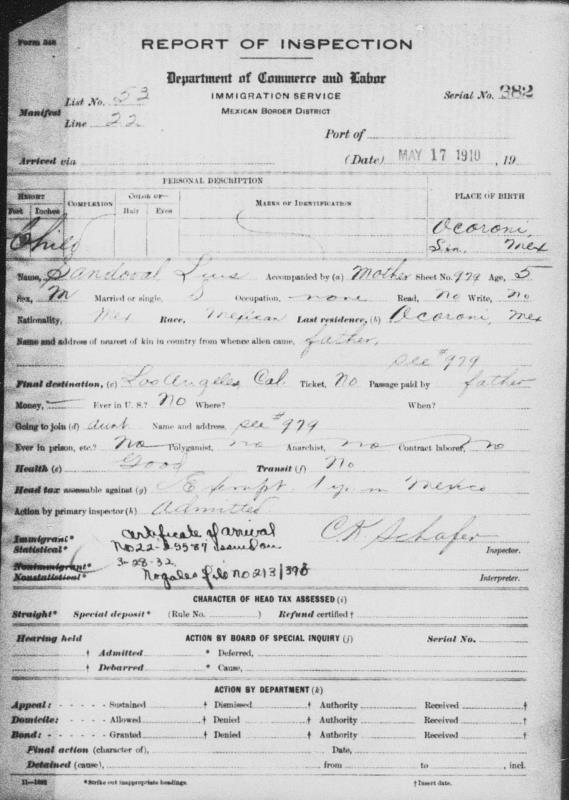 Form 548
REPORT OF INSPECTION
Department of Commerce and Labor
IMMIGRATION SERVICE
MEXICAN BORDER DISTRICT
Serial No. 382
Manifest
List No. 53
Line 22
Port of
Arrived via (Date) MAY 17 1910, 19
PERSONAL DESCRIPTION
HEIGHT COMPLEXION COLOR OF— MARKS OF IDENTIFICATION PLACE OF BIRTH
Feet Inches Hair Eyes
Child Ocoroni,
Sin, Mex
Name, Sandoval, Luis Accompanied by (a) Mother Sheet No. 979 Age, 5
Sex, M Married or single, S Occupation, none Read, No Write, No
Nationality, Mex Race, Mexican Last residence, (b) Ocoroni, Mex
Name and address of nearest of kin in country from whence alien came, father,
see #979
Final destination, (c) Los Angeles Cal. Ticket, No Passage paid by father
Money, — Ever in U. S.? No Where? When?
Going to join (d) aunt Name and address, see #979
Ever in prison, etc.? No Polygamist, no Anarchist, no Contract laborer, no
Health (e) Good Transit (f) No
Head tax assessable against (g) Exempt. 1 yr. in Mexico
Action by primary inspector (h) Admitted
Immigrant* Certificate of arrival C. K. Schafer
Statistical* No 22- issued on Inspector.
Nonimmigrant* 3-28-32
Nonstatistical* Nogales file No 213/398 Interpreter.
CHARACTER OF HEAD TAX ASSESSED (i)
Straight* Special deposit* (Rule No. ) Refund certified †
Hearing held ACTION BY BOARD OF SPECIAL INQUIRY (j) Serial No.
† Admitted * Deferred,
† Debarred * Cause,
ACTION BY DEPARTMENT (k)
Appeal: - - - - - Sustained † Dismissed † Authority Received †
Domicile: - - - - - Allowed † Denied † Authority Received †
Bond: - - - - - Granted † Denied † Authority Received †
Final action (character of), Date,
Detained (cause), from to , incl.
11—1692 *Strike out inappropriate headings. †Insert date.